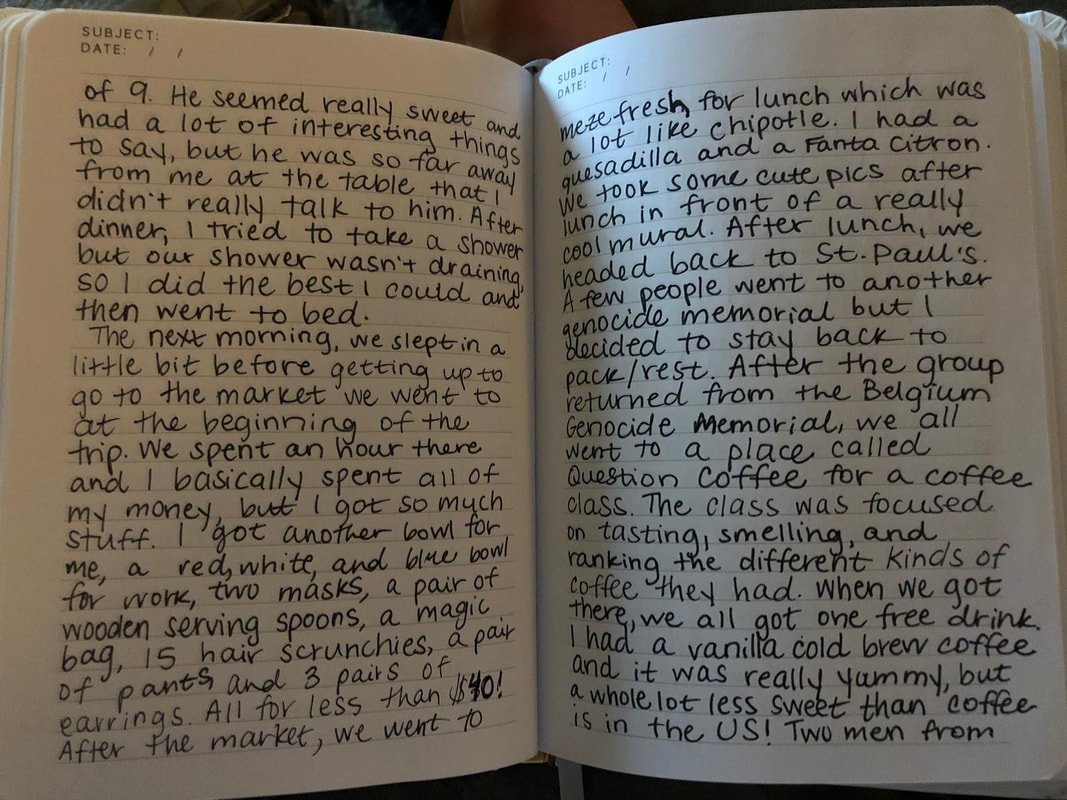 SUBJECT:
DATE: / /
of 9. He seemed really sweet and
had a lot of interesting things
to say, but he was so far away
from me at the table that I
didn't really talk to him. After
dinner, I tried to take a shower
but our shower wasn't draining,
so I did the best I could and
then went to bed.
The next morning, we slept in a
little bit before getting up to
go to the market we went to
at the beginning of the
trip. We spent an hour there
and I basically spent all of
my money, but I got so much
stuff. I got another bowl for
me, a red, white, and blue bowl
for work, two masks, a pair of
wooden serving spoons, a magic
bag, 15 hair scrunchies, a pair
of pants and 3 pairs of
earrings. All for less than $40!
After the market, we went to
SUBJECT:
DATE: / /
meze fresh for lunch which was
a lot like chipotle. I had a
quesadilla and a Fanta Citron.
We took some cute pics after
lunch in front of a really
cool mural. After lunch, we
headed back to St. Paul's.
A few people went to another
genocide memorial but I
decided to stay back to
pack/rest. After the group
returned from the Belgium
Genocide Memorial, we all
went to a place called
Question Coffee for a coffee
class. The class was focused
on tasting, smelling, and
ranking the different kinds of
coffee they had. When we got
there, we all got one free drink.
I had a vanilla cold brew coffee
and it was really yummy, but
a whole lot less sweet than coffee
is in the US! Two men from